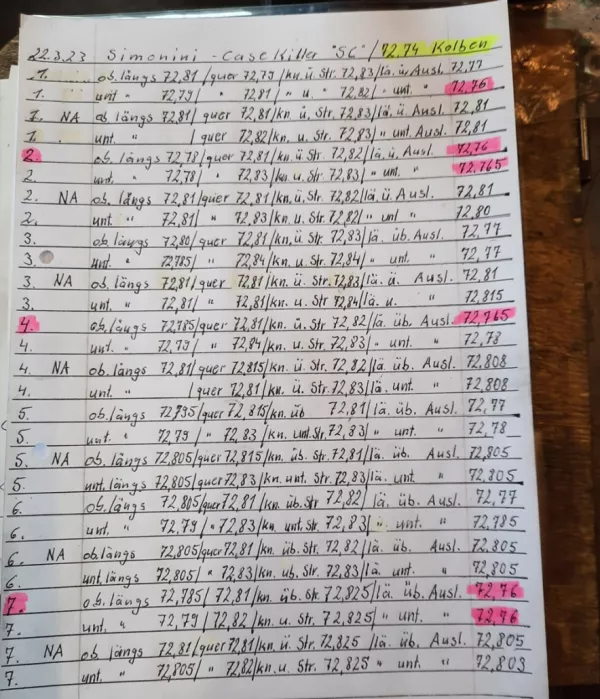 22.3.23 Simonini - Case Killer "SC" / 72,74 Kolben
1. ob. längs 72,81/quer 72,79/kn. ü. Str. 72,83/lä. ü. Ausl. 72,77
1. unt. " 72,79/ " 72,81/ " u. " 72,82/ " unt. " 72,76
1. NA ob längs 72,81/quer 72,81/kn. ü. Str. 72,83/lä. ü. Ausl. 72,81
1. unt. " /quer 72,82/kn. u. Str. 72,83/ " unt. Ausl. 72,81
2. ob. längs 72,78/quer 72,81/kn. ü. Str. 72,82/lä. ü. Ausl. 72,76
2. unt. " 72,78/ " 72,83/kn. u. Str. 72,83/ " un. " 72,765
2. NA ob. längs 72,81/quer 72,81/kn. ü. Str. 72,82/lä ü. Ausl. 72,81
2. unt. " 72,81/ " 72,83/kn. u. Str. 72,82/ " unt " 72,80
3. ob. längs 72,80/quer 72,81/kn. ü. Str. 72,83/lä. üb. Ausl. 72,77
3. unt. " 72,785/ " 72,84/kn. u. Str. 72,84/ " un. " 72,77
3. NA ob. längs 72,81/quer 72,81/kn. ü. Str. 72,83/lä. ü. Ausl. 72,81
3. unt. " 72,81/ " 72,81/kn. u. Str. 72,84/lä. u. " 72,815
4. ob. längs 72,785/quer 72,81/kn. ü. Str 72,82/lä. üb. Ausl. 72,765
4. unt. " 72,79/ " 72,84/kn. u. Str. 72,83/ " unt. " 72,78
4. NA ob. längs 72,81/quer 72,815/kn. ü. Str. 72,82/lä. üb. Ausl. 72,808
4. unt. " /quer 72,81/kn. u. Str. 72,83/lä. unt. " 72,808
5. ob. längs 72,795/quer 72,815/kn. üb 72,81/lä. üb. Ausl. 72,77
5. unt. " 72,79/ " 72,83/kn. unt. Str. 72,83/ " unt. " 72,78
5. NA ob. längs 72,805/quer 72,815/kn. üb. Str. 72,81/lä. üb. Ausl. 72,805
5. unt. längs 72,805/quer 72,83/kn. unt. Str. 72,83/lä. unt. " 72,805
6. ob. längs 72,805/quer 72,81/kn. üb. Str 72,82/ lä. üb. Ausl. 72,77
6. unt. " 72,79/ " 72,83/kn. unt. Str. 72,83/ " unt. " 72,785
6. NA ob. längs 72,805/quer 72,81/kn. üb. Str. 72,82/lä. üb. Ausl. 72,805
6. unt. längs 72,805/ " 72,83/kn. üb. Str. 72,83/lä. unt. " 72,805
7. ob. längs 72,785/ 72,81/kn. üb. Str. 72,825/lä. üb. Ausl. 72,76
7. unt. " 72,79/ 72,82/kn. u. Str. 72,825/ " unt. " 72,76
7. NA ob längs 72,81/quer 72,81/kn. ü. Str. 72,825 /lä. üb. Ausl. 72,805
7. unt. " 72,805/ " 72,82/kn. u. Str. 72,825 " unt. " 72,803